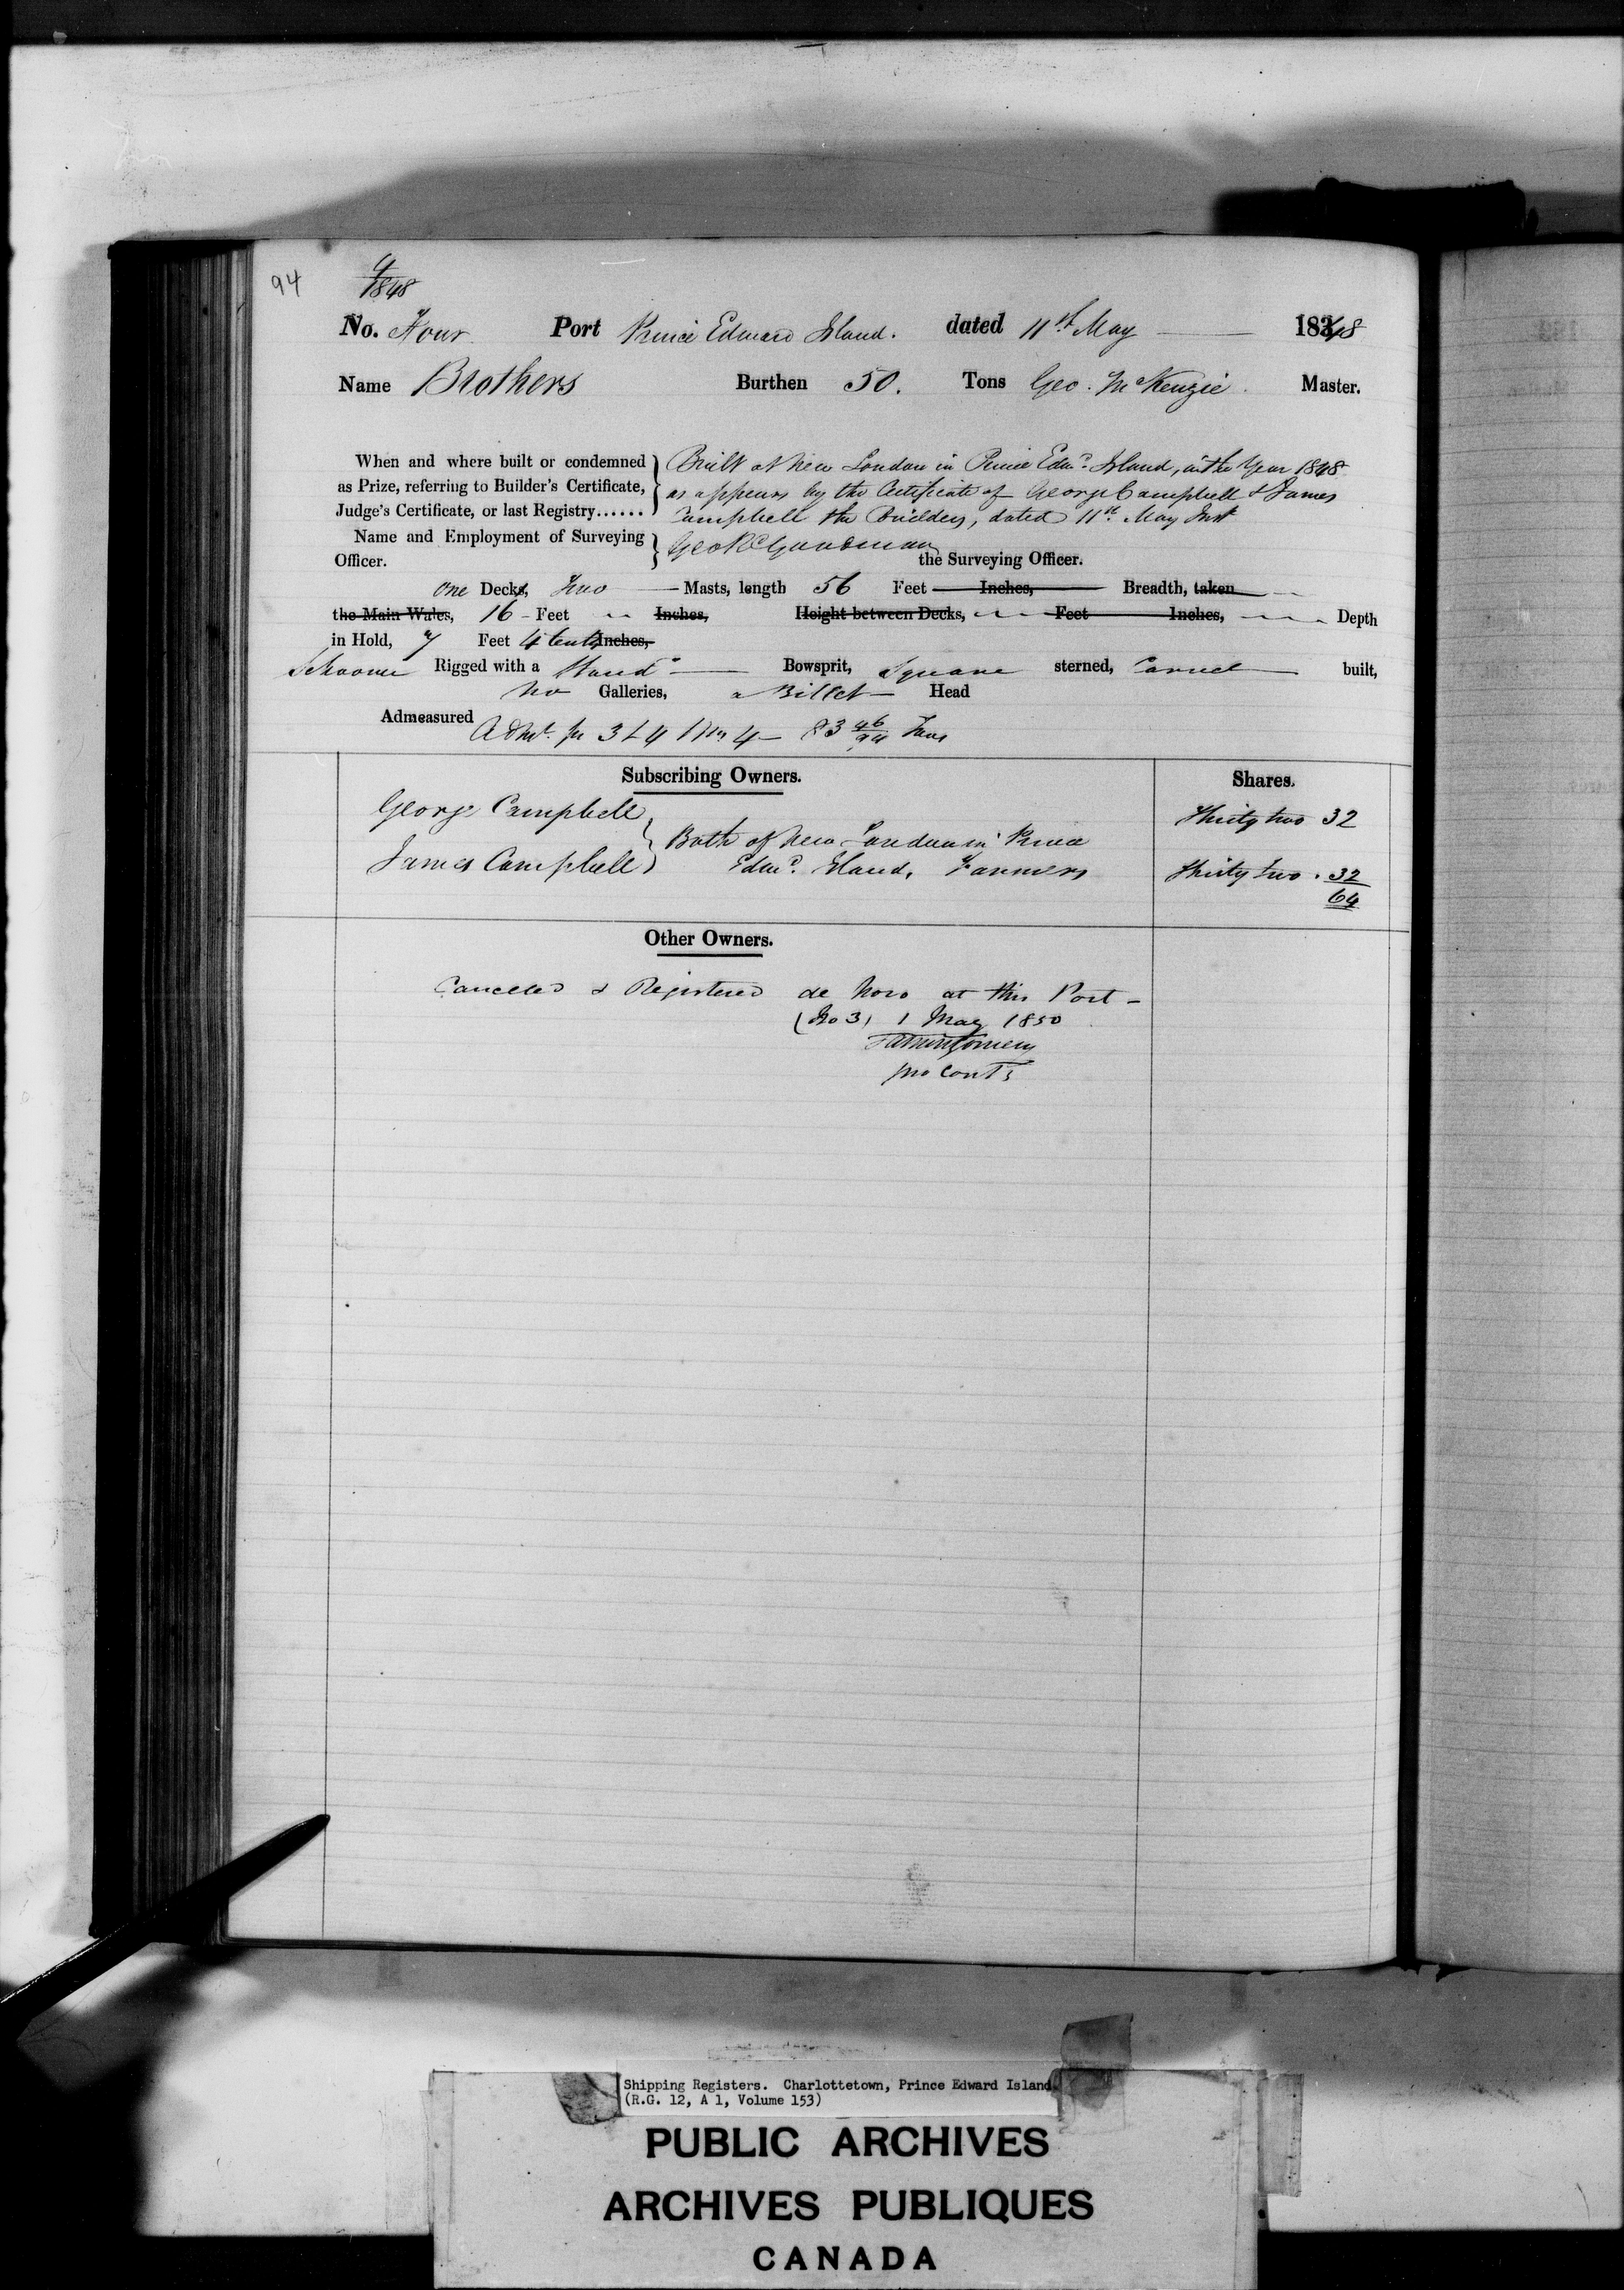 94
4
1848
No. Four Port Prince Edward Island. dated 11th May 1848
Name Brothers Burthen 50. Tons Geo. McKenzie Master.
When and where built or condemned as Prize, referring to Builder's Certificate, Judge's Certificate, or last Registry......
Built at New London in Prince Edwd. Island, in the Year 1848
as appears by the Certificate of George Campbell & James
Campbell the Builders, dated 11th May Inst
Name and Employment of Surveying Officer.
Geo R Goodman
the Surveying Officer.
one Decks, Two Masts, length 56 Feet Inches, Breadth, taken
the Main Wales, 16 Feet Inches, Height between Decks, Feet Inches, Depth
in Hold, 7 Feet 4 tenths Inches,
Schooner Rigged with a Stand'g Bowsprit, Square sterned, Carvel built,
no Galleries, a Billet Head
Admeasured 83 46/94 Tons
Subscribing Owners. Shares.
George Campbell Thirty two 32
Both of New London in Prince
James Campbell Edwd. Island, Farmers Thirty two . 32
64
Other Owners.
Cancelled & Registered de Novo at this Port -
(No 3) 1 May 1850
Shipping Registers. Charlottetown, Prince Edward Island.
(R.G. 12, A 1, Volume 153)
PUBLIC ARCHIVES
ARCHIVES PUBLIQUES
CANADA